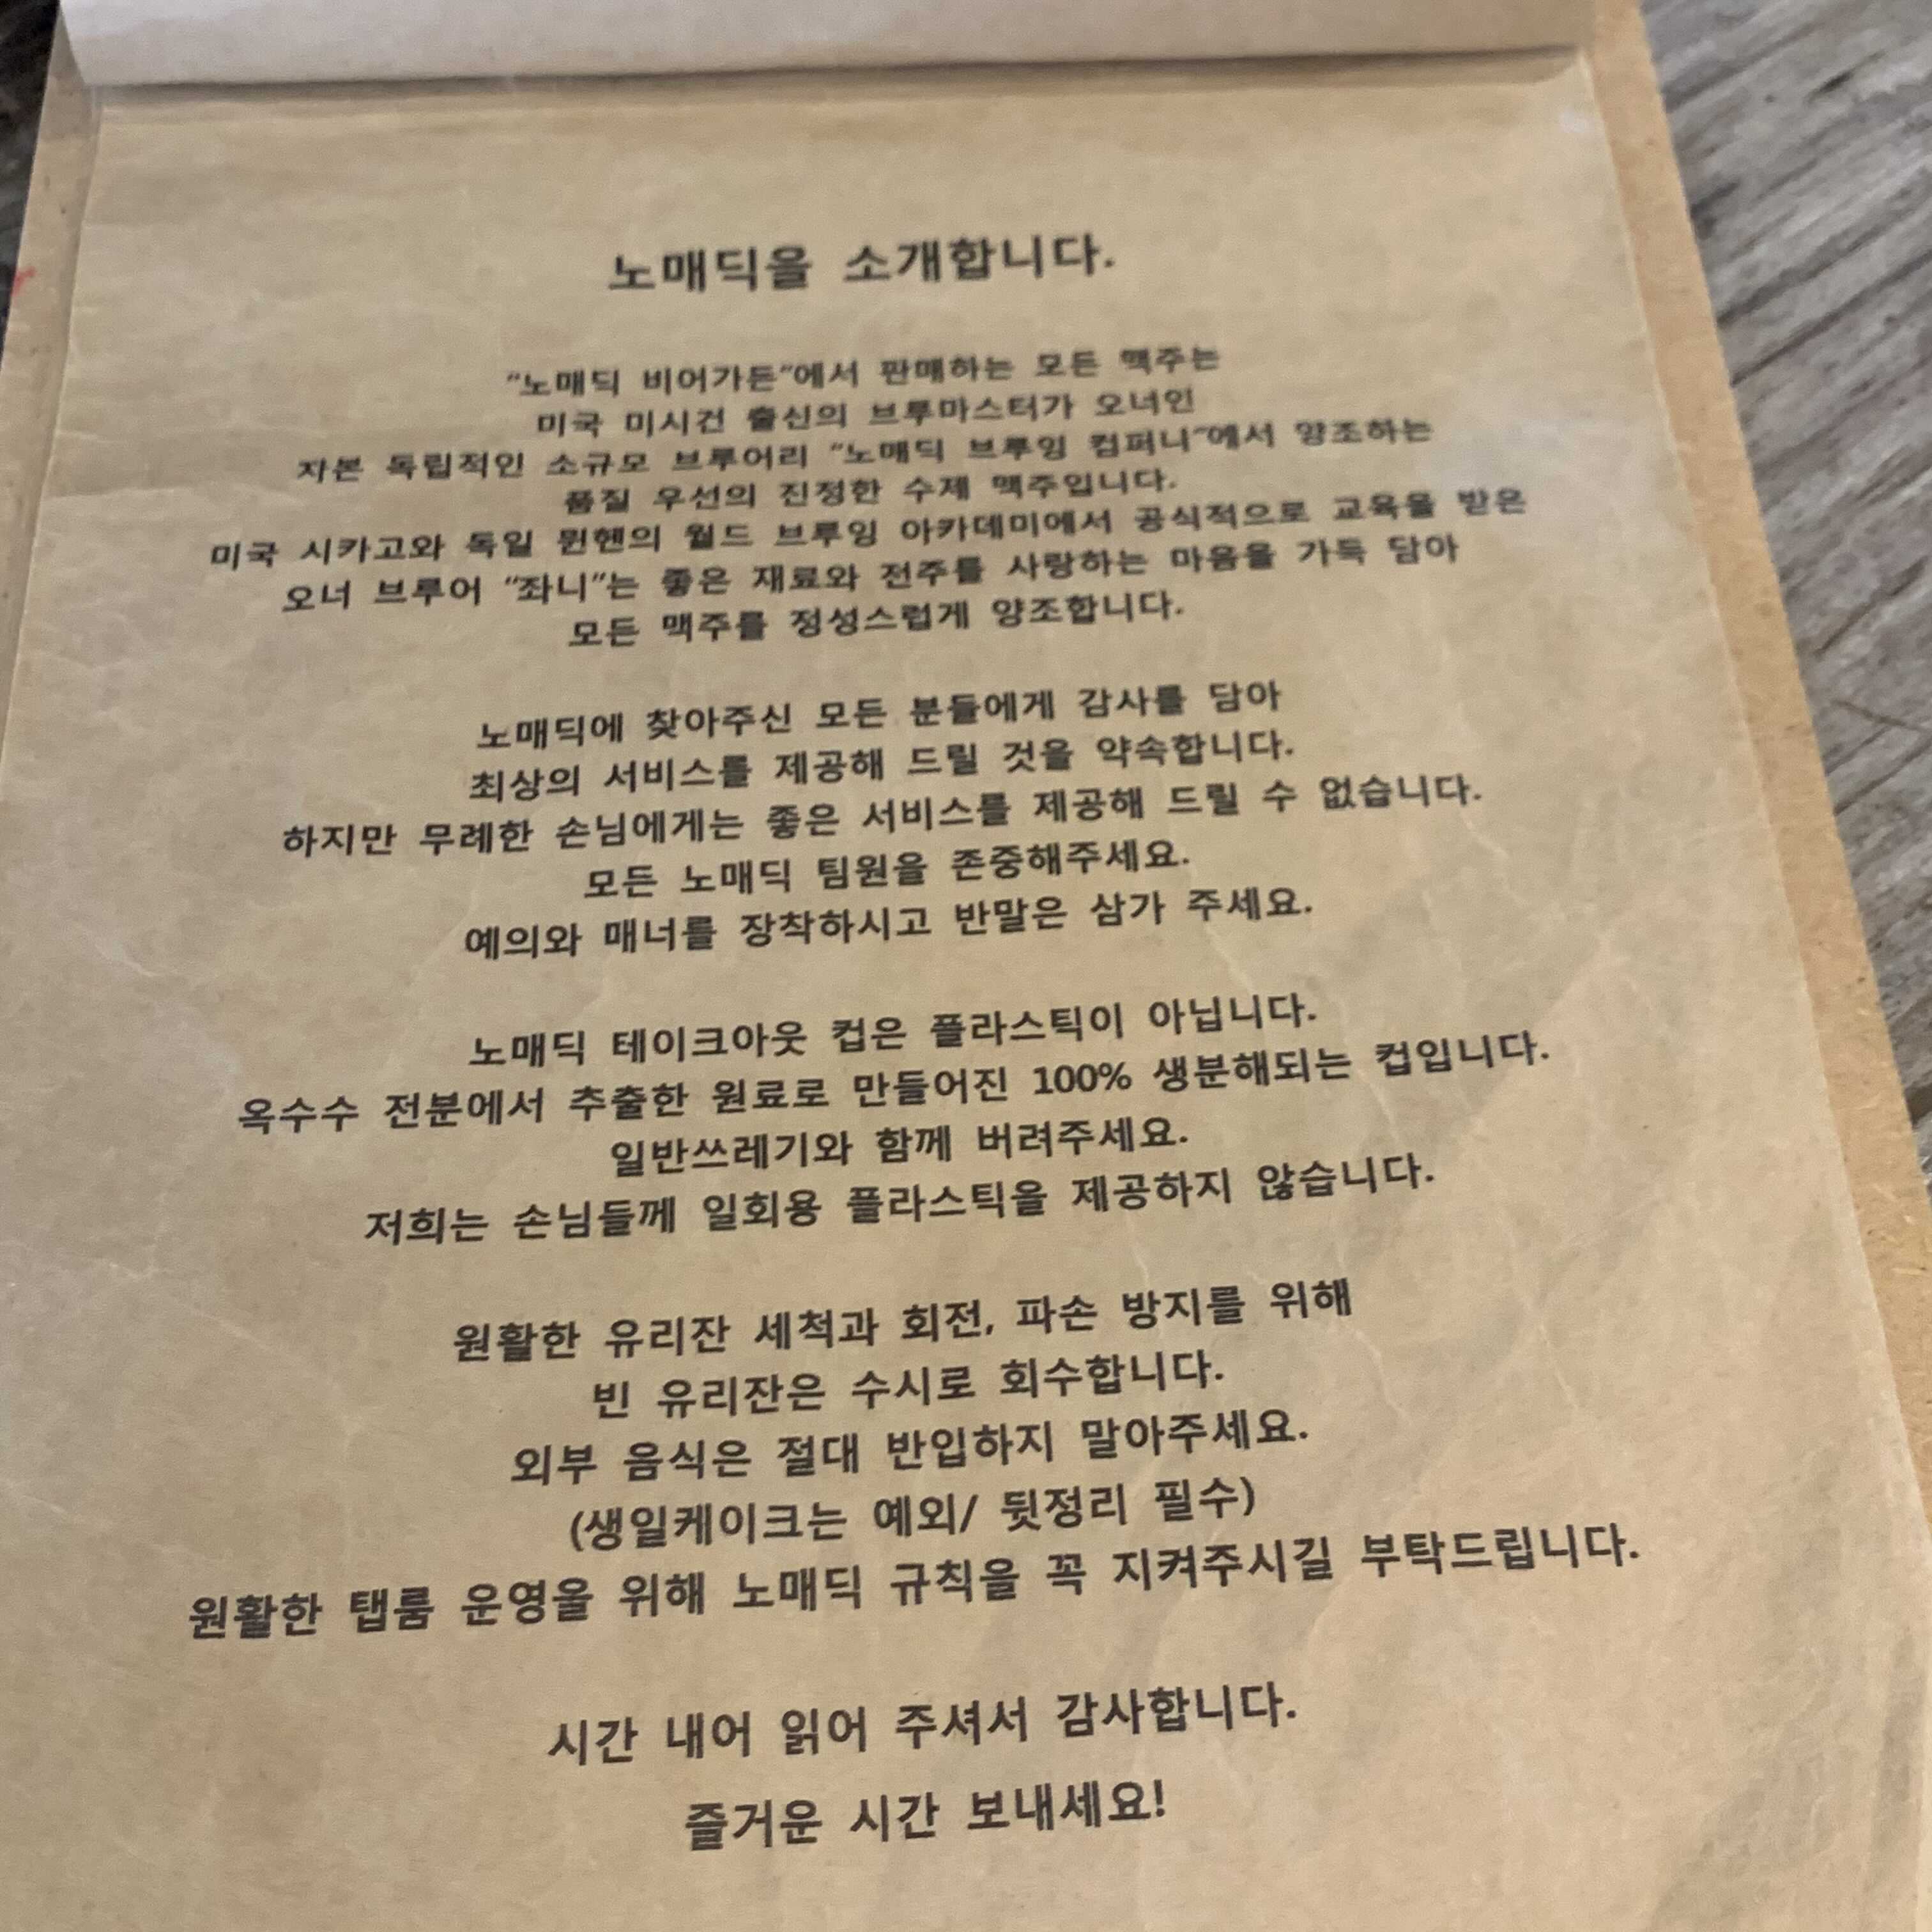 노매딕을 소개합니다.
“노매딕 비어가든”에서 판매하는 모든 맥주는
미국 미시건 출신의 브루마스터가 오너인
자본 독립적인 소규모 브루어리 “노매딕 브루잉 컴퍼니”에서 양조하는
품질 우선의 진정한 수제 맥주입니다.
미국 시카고와 독일 뮌헨의 월드 브루잉 아카데미에서 공식적으로 교육을 받은
오너 브루어 “좌니”는 좋은 재료와 전주를 사랑하는 마음을 가득 담아
모든 맥주를 정성스럽게 양조합니다.
노매딕에 찾아주신 모든 분들에게 감사를 담아
최상의 서비스를 제공해 드릴 것을 약속합니다.
하지만 무례한 손님에게는 좋은 서비스를 제공해 드릴 수 없습니다.
모든 노매딕 팀원을 존중해주세요.
예의와 매너를 장착하시고 반말은 삼가 주세요.
노매딕 테이크아웃 컵은 플라스틱이 아닙니다.
옥수수 전분에서 추출한 원료로 만들어진 100% 생분해되는 컵입니다.
일반쓰레기와 함께 버려주세요.
저희는 손님들께 일회용 플라스틱을 제공하지 않습니다.
원활한 유리잔 세척과 회전, 파손 방지를 위해
빈 유리잔은 수시로 회수합니다.
외부 음식은 절대 반입하지 말아주세요.
(생일케이크는 예외/ 뒷정리 필수)
원활한 탭룸 운영울 위해 노매딕 규칙을 꼭 지켜주시길 부탁드립니다.
시간 내어 읽어 주셔서 감사합니다.
즐거운 시간 보내세요!